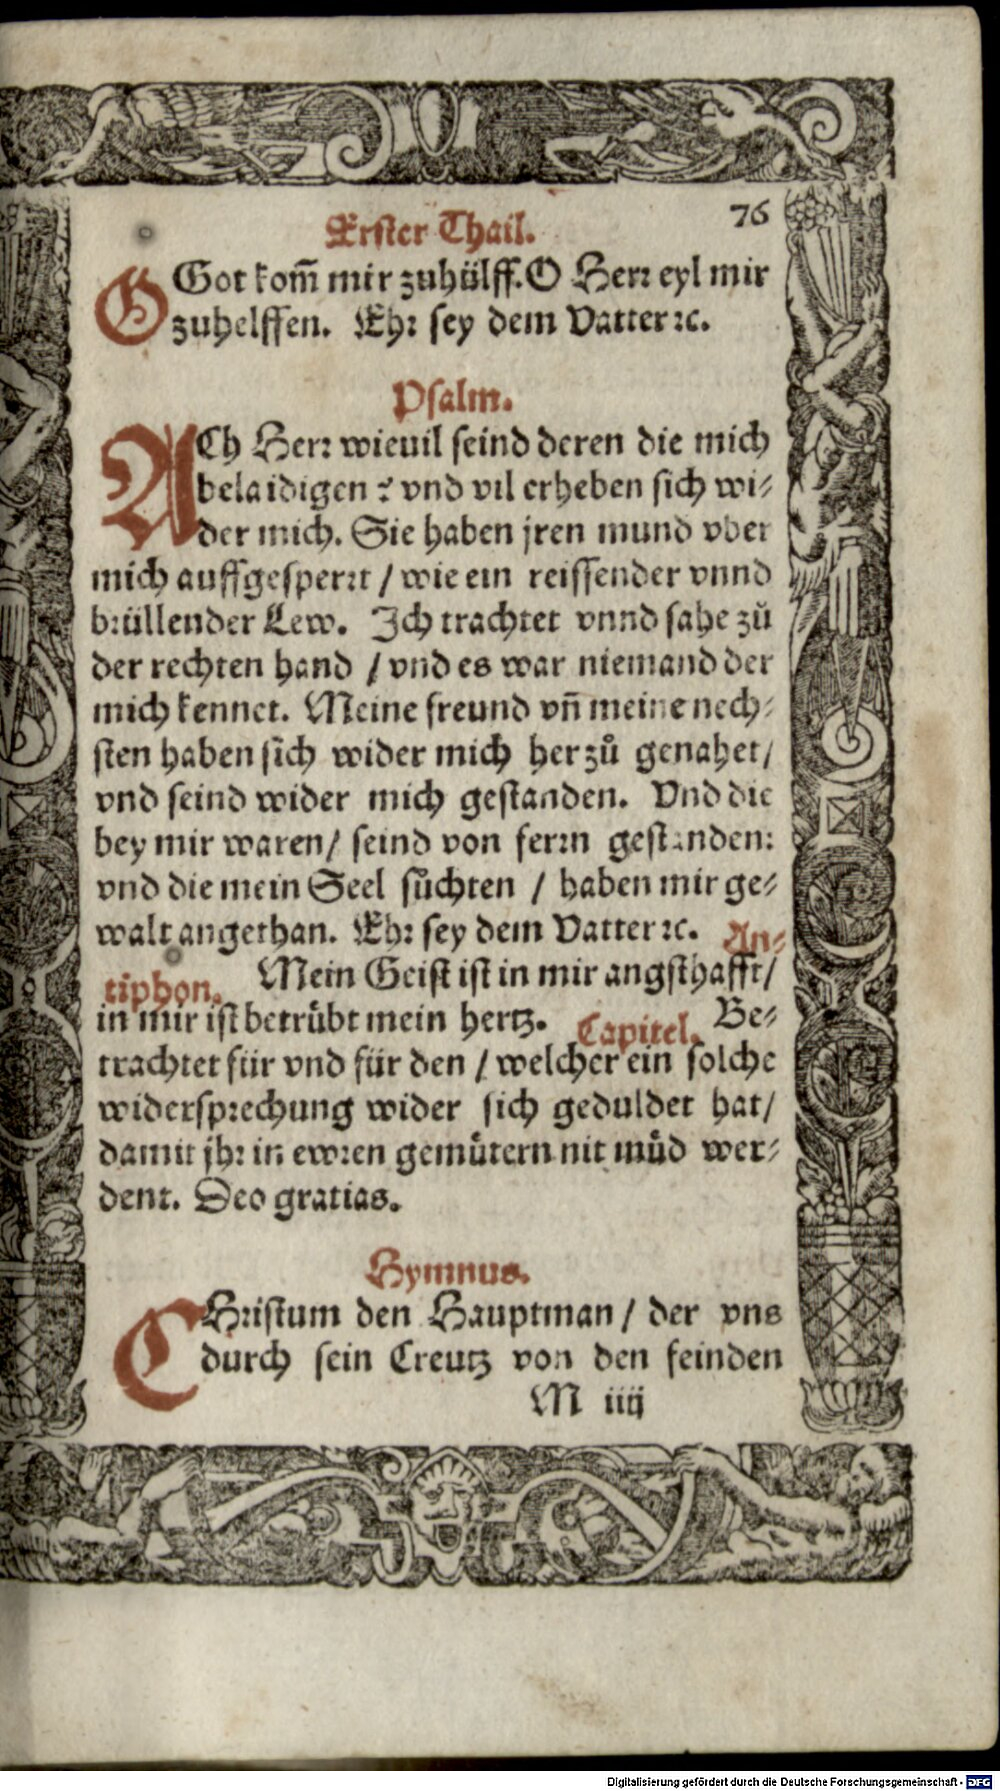 76
Erster Thail.
O Got kom̃ mir zuhülff. O Herr eyl mir
zuhelffen. Ehr sey dem Vatter ꝛc.
Psalm.
ACh Herr wieuil seind deren die mich
belaidigen? vnd vil erheben sich wi-
der mich. Sie haben jren mund vber
mich auffgesperrt / wie ein reissender vnnd
brüllender Lew. Ich trachtet vnnd sahe zů
der rechten hand / vnd es war niemand der
mich kennet. Meine freund vñ meine nech-
sten haben sich wider mich herzů genahet/
vnd seind wider mich gestanden. Vnd die
bey mir waren/ seind von ferrn gestanden:
vnd die mein Seel sůchten / haben mir ge-
walt angethan. Ehr sey dem Vatter ꝛc. An-
tiphon. Mein Geist ist in mir angsthafft/
in mir ist betrůbt mein hertz. Capitel. Be-
trachtet für vnd für den / welcher ein solche
widersprechung wider sich geduldet hat/
damit jhr in ewren gemůtern nit můd wer-
dent. Deo gratias.
Hymnus.
CHristum den Hauptman / der vns
durch sein Creutz von den feinden
M iiij
Digitalisierung gefördert durch die Deutsche Forschungsgemeinschaft - DFG